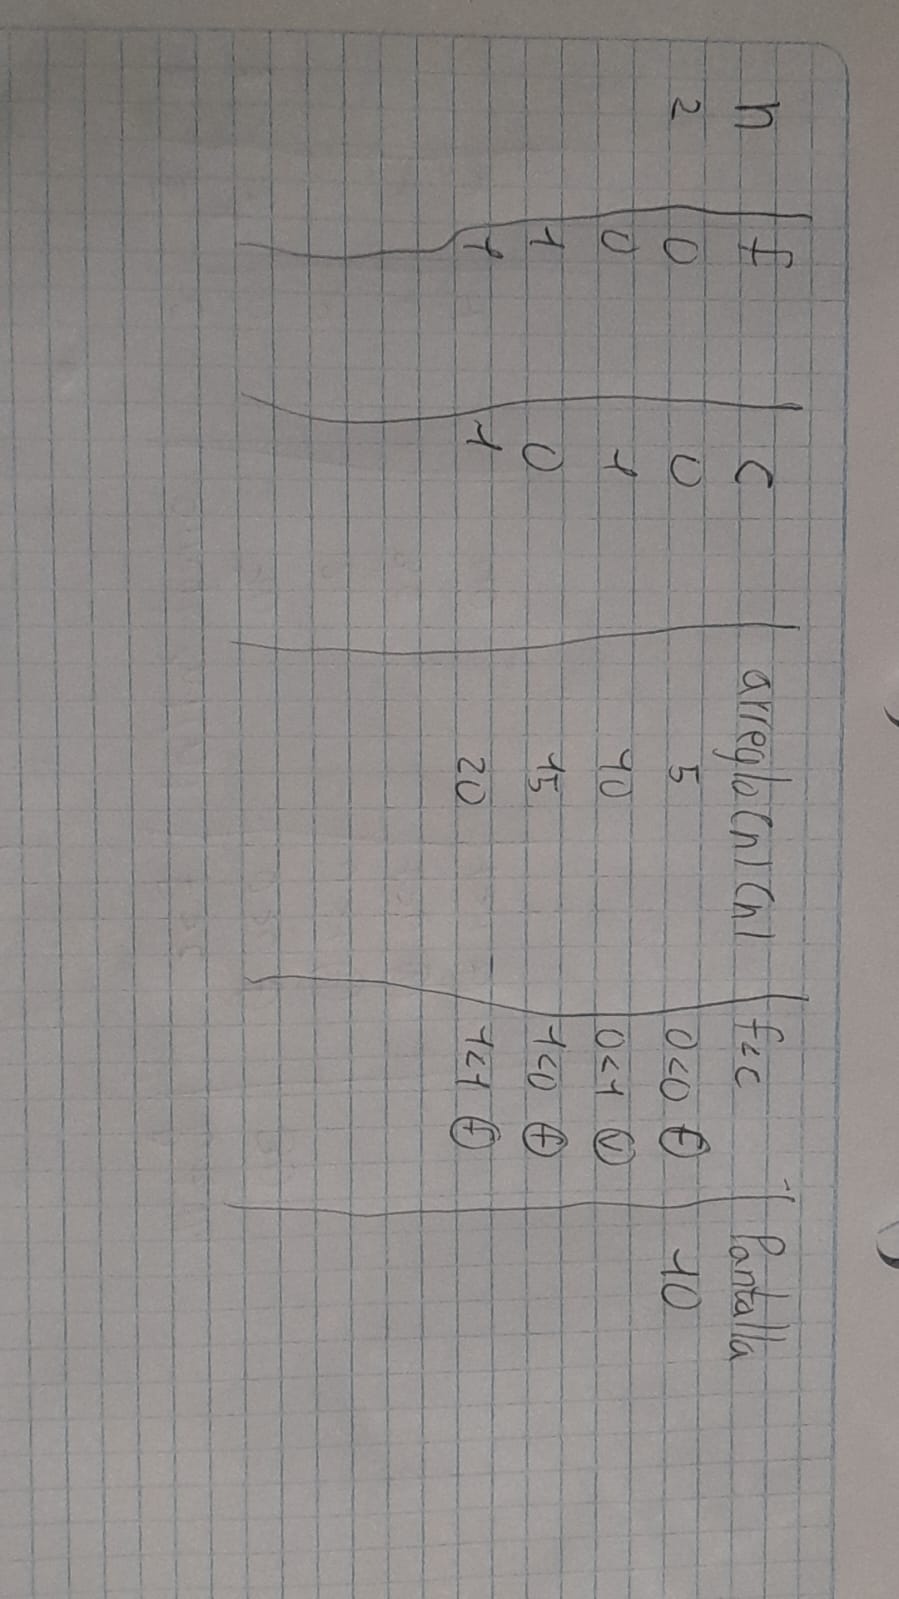 n f c arreglo(n)(n) f<c Pantalla
2 0 0 5 0<0 f 10
0 1 10 0<1 v
1 0 15 1<0 f
1 1 20 1<1 f